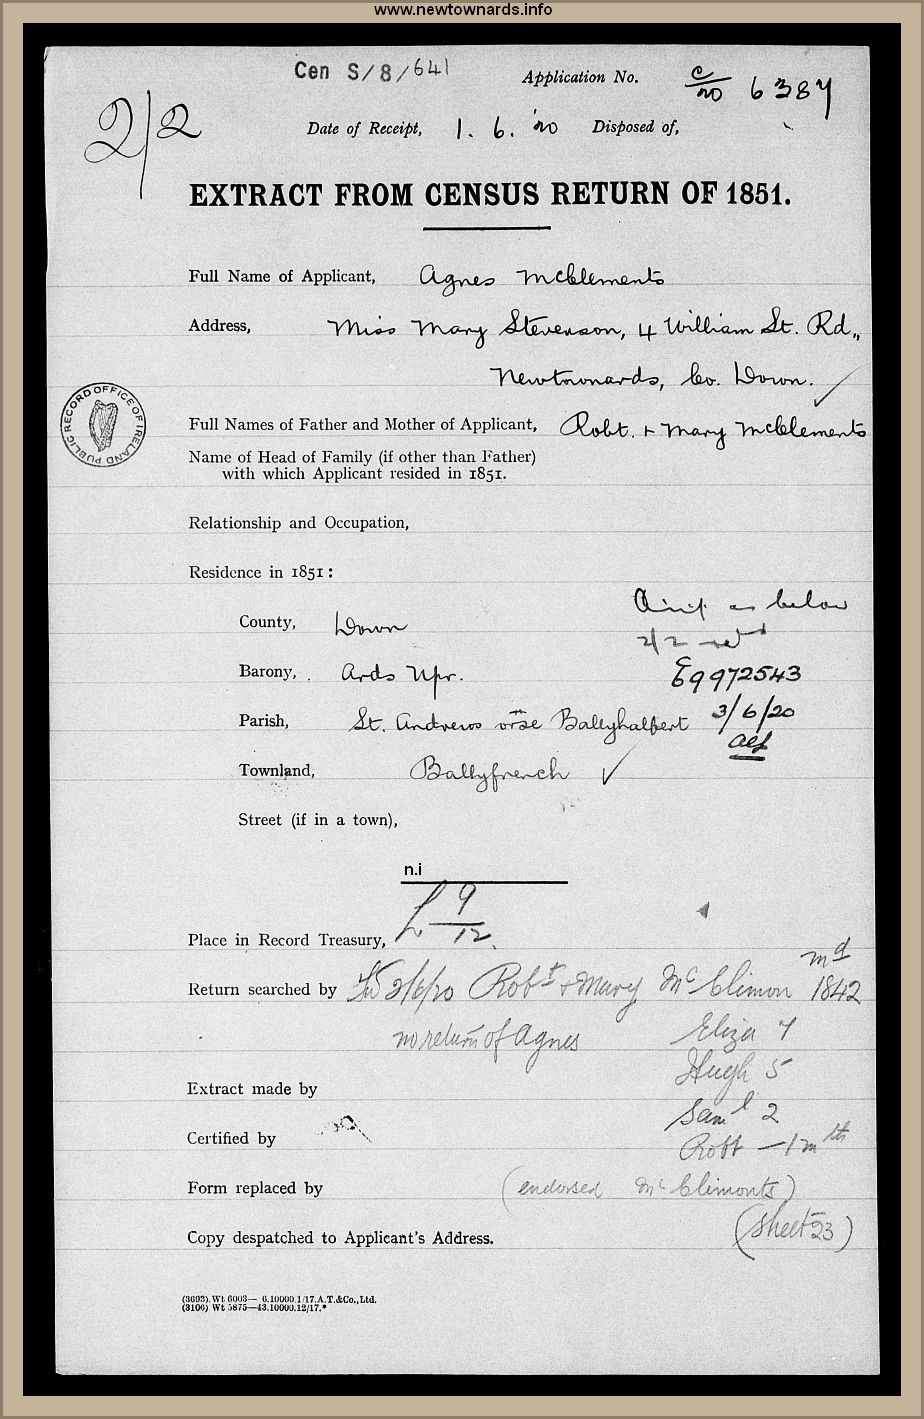 www.newtownards.info
Cen S/8/641
Application No. C/20 6387
2/2
Date of Receipt, 1. 6. '20 Disposed of,
EXTRACT FROM CENSUS RETURN OF 1851.
Full Name of Applicant, Agnes McClements
Address, Miss Mary Stevenson, 4 William St. Rd.,
Newtownards, Co. Down.
PUBLIC RECORD OFFICE OF IRELAND
Full Names of Father and Mother of Applicant, Robt. + Mary McClements
Name of Head of Family (if other than Father)
with which Applicant resided in 1851.
Relationship and Occupation,
Residence in 1851:
as below
County, Down
2/2
Barony, Ards Upr.
972543
Parish, St. Andrews Ballyhalbert
3/6/20
Townland, Ballyfrench
Street (if in a town),
n.i
9/12
Place in Record Treasury,
Return searched by 3/6/20 Robt + Mary McClimon md 1842
no return of Agnes
Eliza 7
Hugh 5
Extract made by
Saml 2
Certified by
Robt — 1 mth
Form replaced by (endorsed McClimonts)
(sheet 23)
Copy despatched to Applicant's Address.
(3693).Wt 6003— 6.10000.1/17.A.T.&Co.,Ltd.
(3106) Wt 5875—43.10000.12/17.*